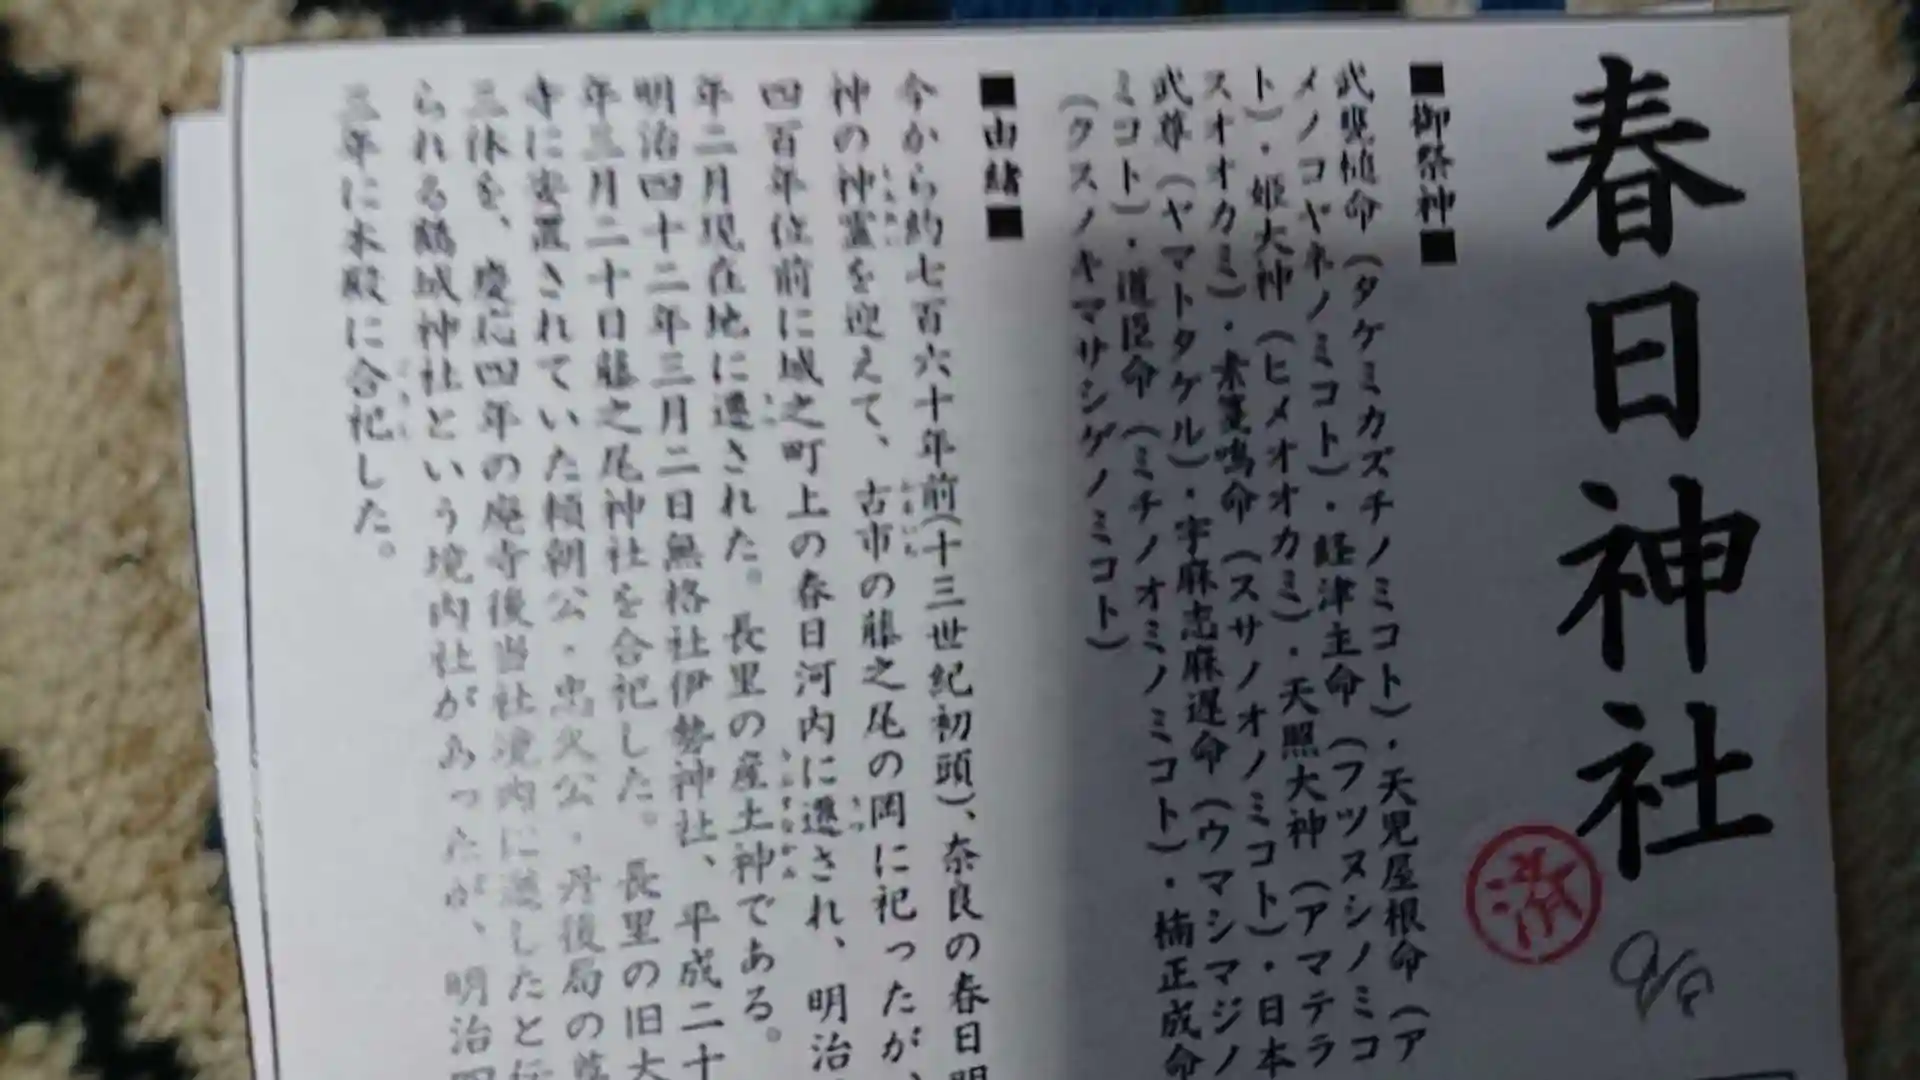 春日神社
済
■御祭神■
武甕槌命（タケミカズチノミコト）・天児屋根命（ア
メノコヤネノミコト）・経津主命（フツヌシノミコ
ト）・姫大神（ヒメオオカミ）・天照大神（アマテラ
スオオカミ）・素戔嗚命（スサノオノミコト）・日本
武尊（ヤマトタケル）・宇麻志麻遅命（ウマシマジノ
ミコト）・道臣命（ミチノオミノミコト）・楠正成命
（クスノキマサシゲノミコト）
■由緒■
今から約七百六十年前（十三世紀初頭）、奈良の春日明
神の神霊を迎えて、古市の藤之尾の岡に祀ったが、
四百年位前に城之町上の春日河内に遷され、明治
年二月現在地に遷された。長里の産土神である。
明治四十二年三月二日無格社伊勢神社、平成二十
年三月二十日藤之尾神社を合祀した。長里の旧大
寺に安置されていた頼朝公・忠久公・丹後局の尊
三体を、慶応四年の廃寺後当社境内に遷したと伝
られる鶴城神社という境内社があったが、明治四
三年に本殿に合祀した。